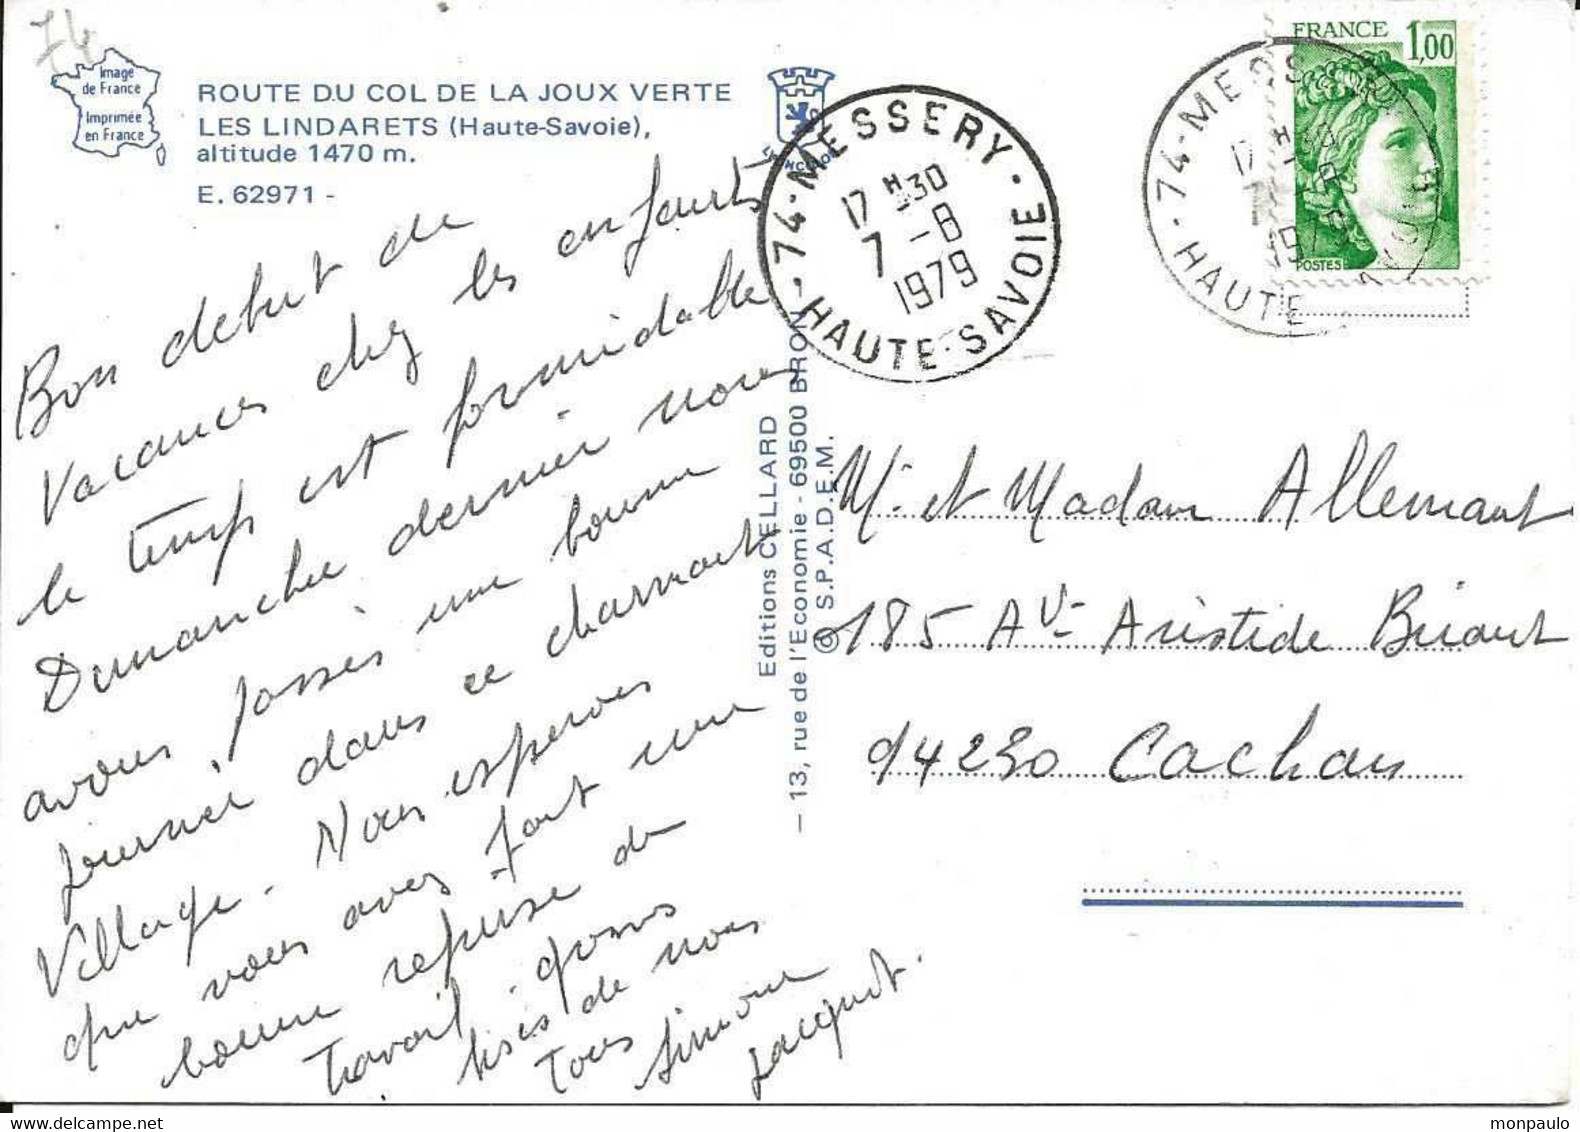 74
Image
de France
Imprimée
en France
ROUTE DU COL DE LA JOUX VERTE
LES LINDARETS (Haute-Savoie),
altitude 1470 m.
E. 62971 -
Bon debut de
Vacances chez les enfants
le temps est formidable
Dimanche dernier nous
avons passés une bonne
journée dans ce charmant
Village. Nous esperons
que vous avez fait une
bonne reprise du
Travail. gross
bises de nous
Tous Simone
Jacquot.
Editions CELLARD
- 13, rue de l'Economie - 69500 BRON -
© S.P.A.D.E.M.
74-MESSERY-HAUTE-SAVOIE
17 H 30
7 -8
1979
FRANCE 1,00
POSTES
74-MESS
HAUTE
17 H
7
1979
M. et Madam Allemant
185 Av- Aristide Briant
94230 Cachan
monpaulo